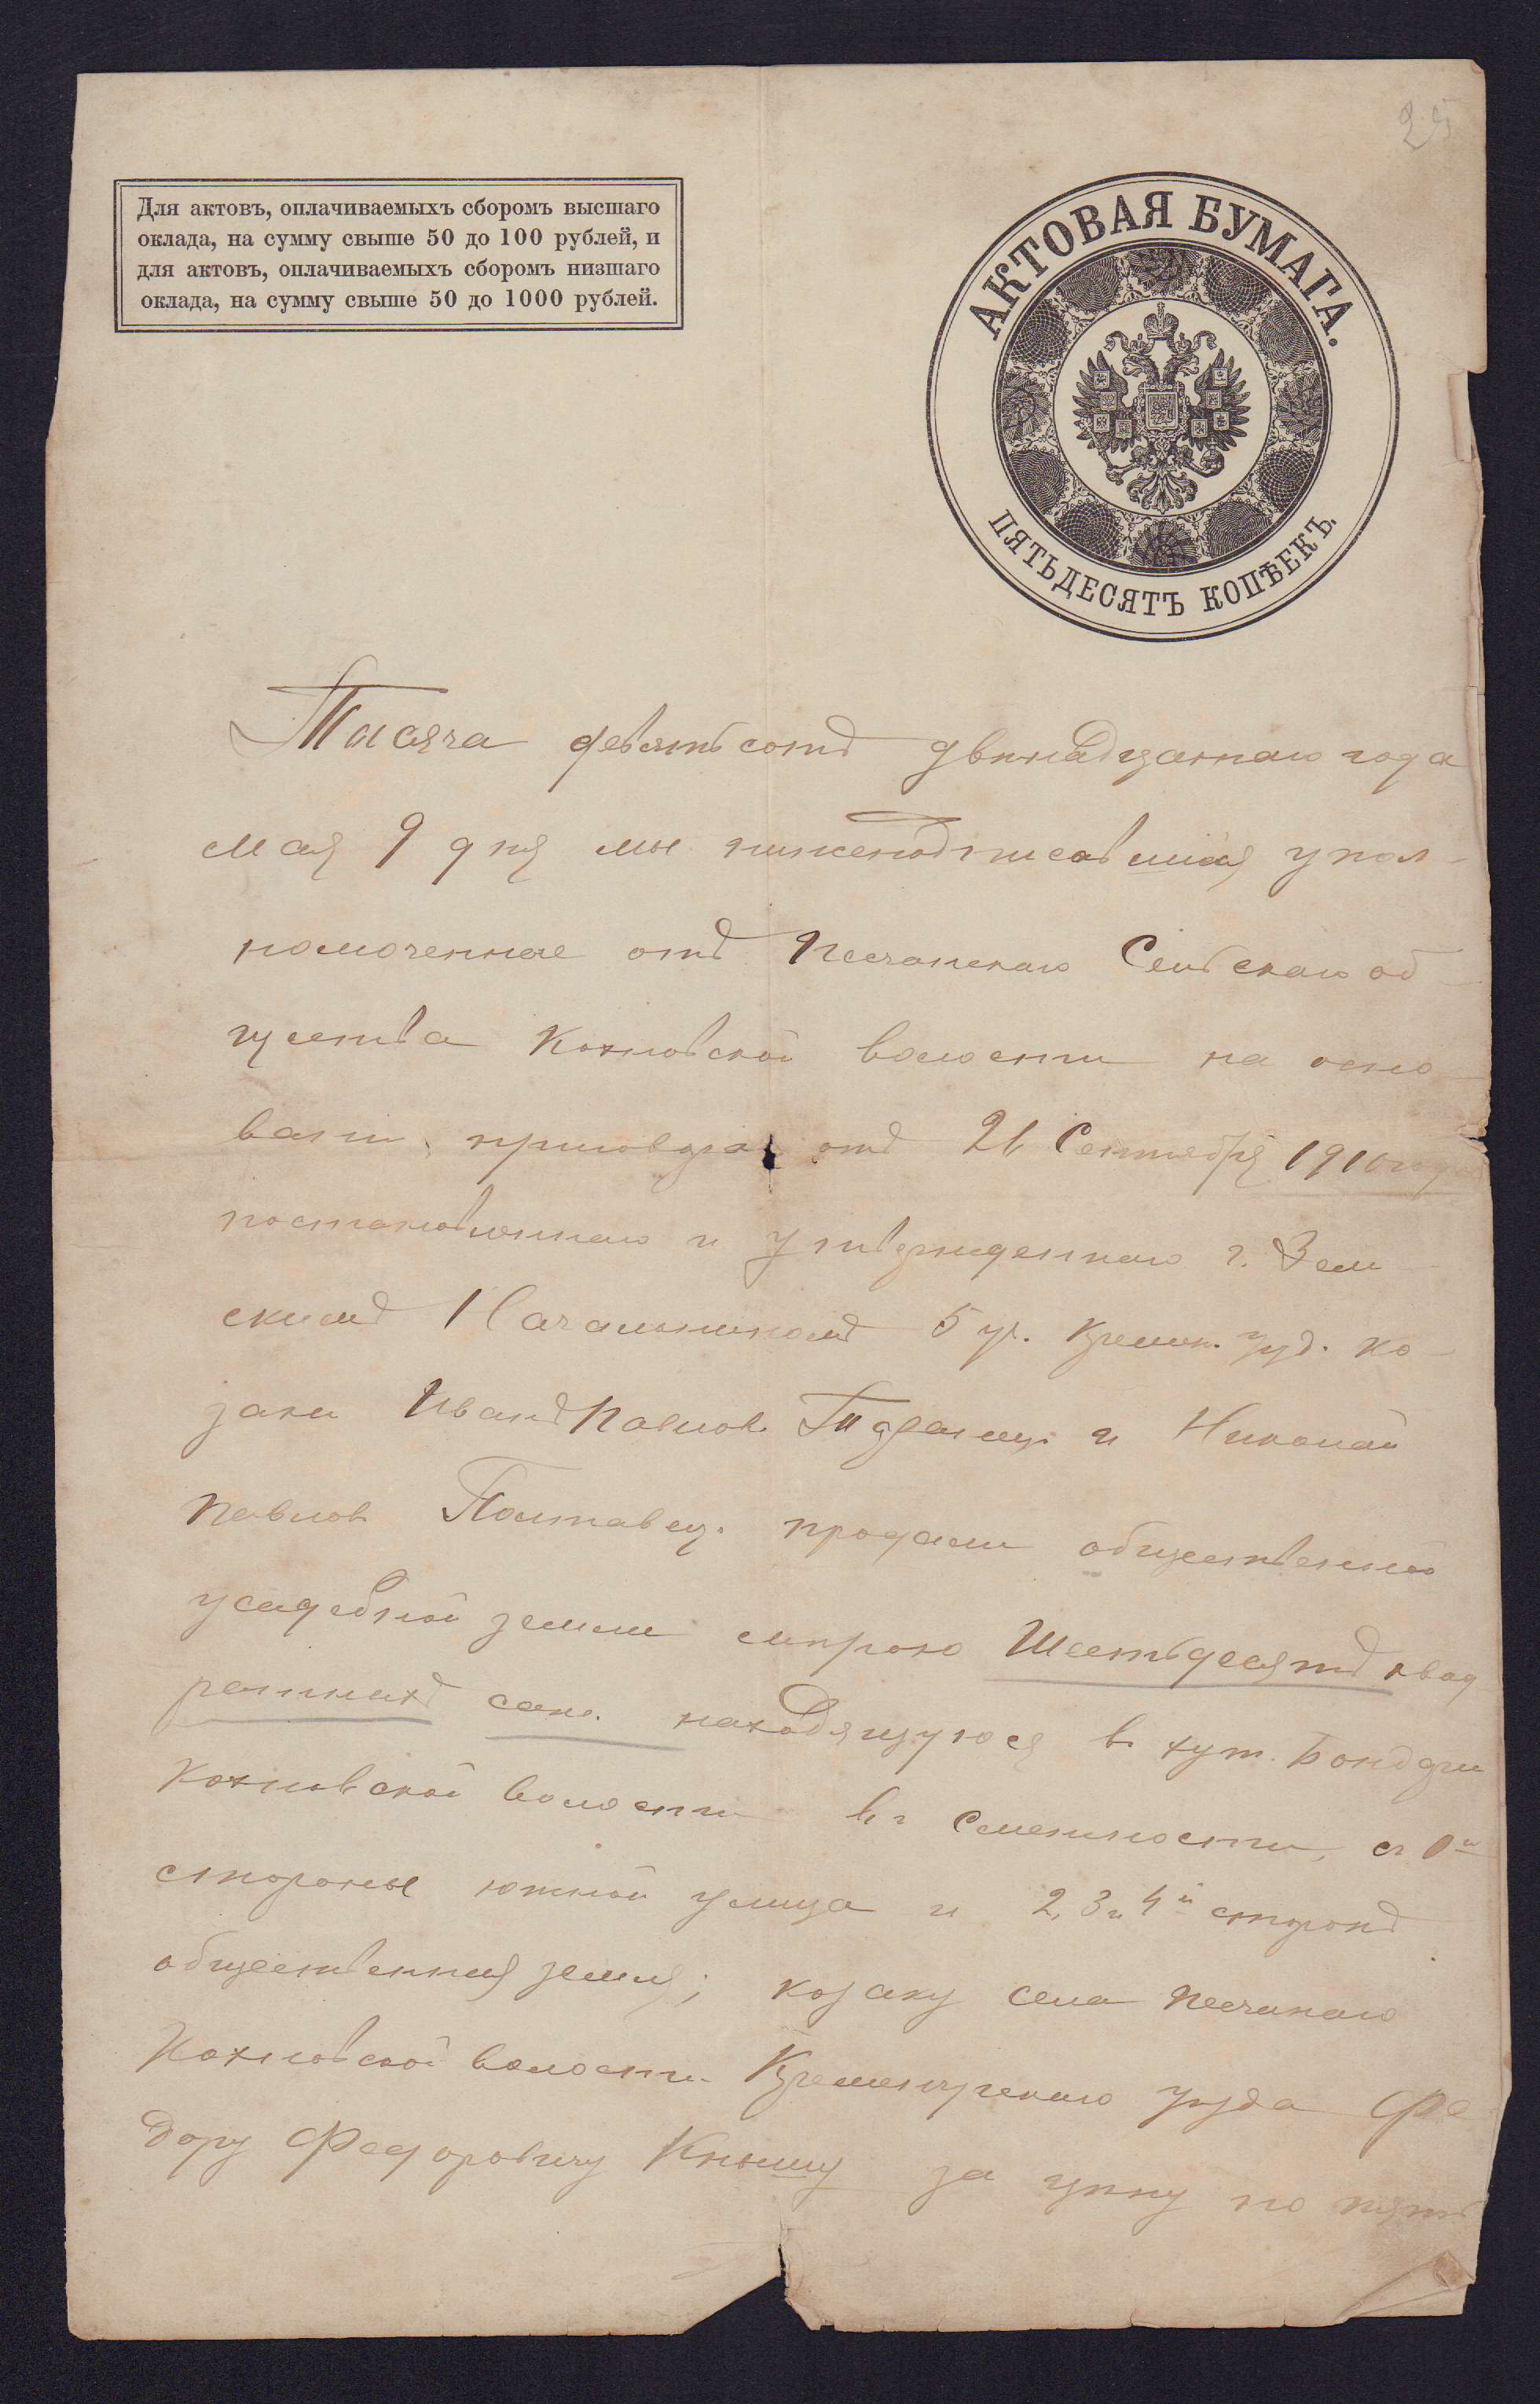 25
Для актовъ, оплачиваемыхъ сборомъ высшаго
оклада, на сумму свыше 50 до 100 рублей, и
для актовъ, оплачиваемыхъ сборомъ низшаго
оклада, на сумму свыше 50 до 1000 рублей.
АКТОВАЯ БУМАГА.
ПЯТЬДЕСЯТЪ КОПѢЕКЪ.
Тысяча девятьсотъ двѣнадцатаго года
мая 9 дня мы нижеподписавшіяся упол-
номоченные отъ Песчанскаго Сельскаго об
щества Кохновской волости на осно
ваніи приговора отъ 26 Сентября 1910 года
постановленнаго и утвержденнаго г. Зем
скимъ Начальникомъ 5 уч. Кремен. уѣз. ко-
заки Иванъ Павлов. и Николай
Павлов. Полтавец. продали общественной
усадебной земли мѣрою Шестьдесятъ квад
ратныхъ саж. находящуюся въ хут. Бондари
Кохновской волости въ смежности, съ 1й
стороны южной улица и 2, 3 и 4й сторонъ
общественная земля; козаку села Песчанаго
Кохновской волости Кременчугскаго уѣзда Фе
дору Федоровичу Кнышу за цѣну по пять